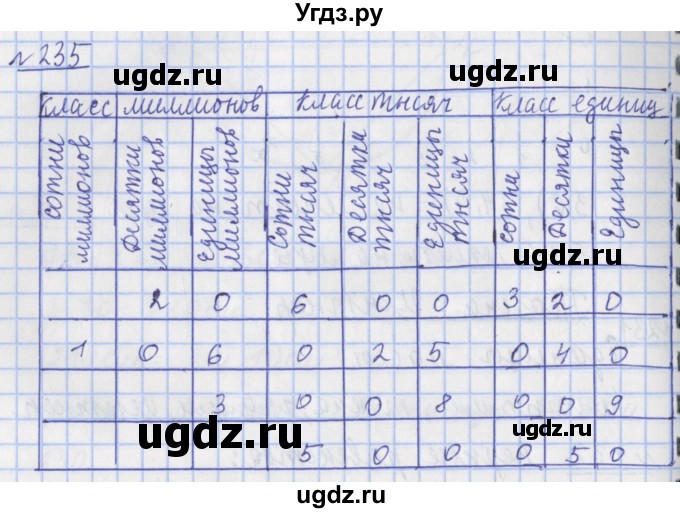 Угдз.ру
№ 235
ugdz.ru ugdz.ru
класс миллионов класс тысяч класс единиц
сотни миллионов
Десятки миллионов
Единицы миллионов
Сотни тысяч
Десятки тысяч
Единицы тысяч
сотни
Десятки
Единицы
ugdz.ru
2 0 6 0 0 3 2 0
ugdz.ru
1 0 6 0 2 5 0 4 0
3 0 0 8 0 0 9
ugdz.ru ugdz.ru
5 0 0 0 5 0
ugdz.ru